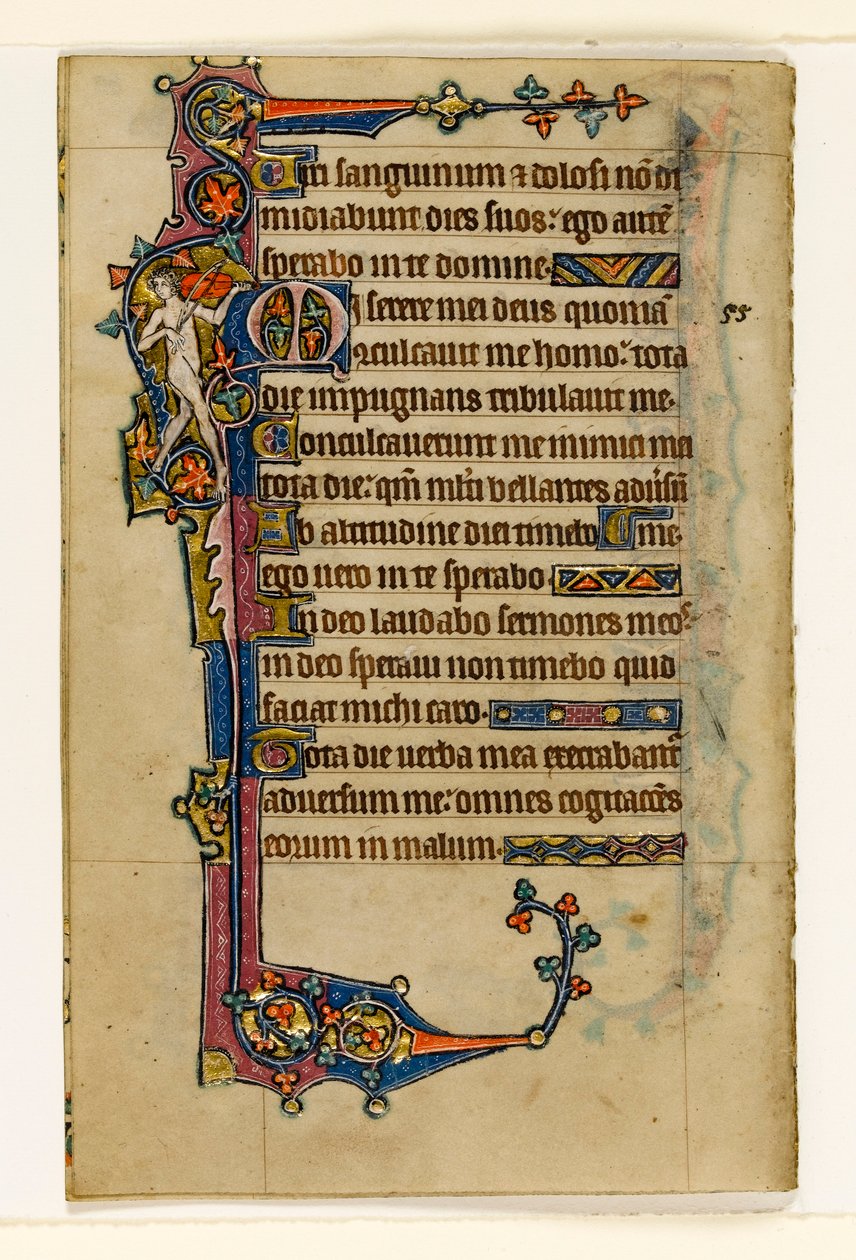 Viri sanguinum ⁊ dolosi nō di
midiabunt dies suos: ego autē
sperabo in te domine.
Miserere mei deus quoniā
conculcauit me homo: tota
die impugnans tribulauit me.
Conculcauerunt me inimici mei
tota die: qm̄ mlti bellantes adūsū
Ab altitudine diei timebo me.
ego uero in te sperabo.
In deo laudabo sermones meos
in deo speraui non timebo quid
faciat michi caro.
Tota die uerba mea execrabantr
aduersum me: omnes cogitacōes
eorum in malum.
55